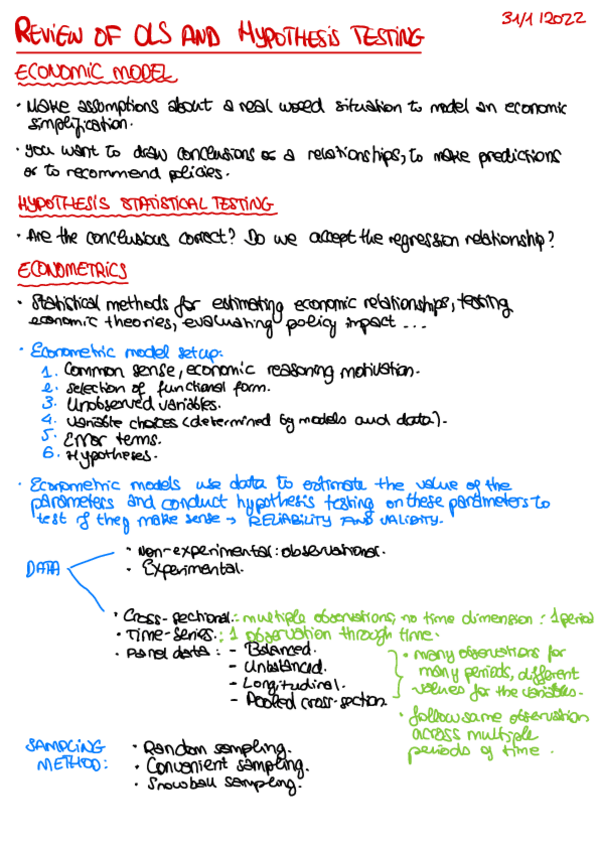 31/1/2022
REVIEW OF OLS AND HYPOTHESIS TESTING
ECONOMIC MODEL
· Make assumptions about a real world situation to model an economic
simplification.
· you want to draw conclusions as a relationships, to make predictions
or to recommend policies.
HYPOTHESIS STATISTICAL TESTING
· Are the conclusions correct? Do we accept the regression relationship?
ECONOMETRICS
· Statistical methods for estimating economic relationships, testing
economic theories, evaluating policy impact ...
· Econometric model setup:
1. Common sense, economic reasoning motivation.
2. selection of functional form.
3. Unobserved variables.
4. variable choices (determined by models and data).
5. Error terms.
6. Hypotheses.
· Econometric models use data to estimate the value of the
parameters and conduct hypothesis testing on these parameters to
test if they make sense → RELIABILITY AND VALIDITY.
DATA
· Non-experimental: observational.
· Experimental.
· Cross-sectional: multiple observations, no time dimension: 1 period
· Time-series: 1 observation through time.
· Panel data: - Balanced.
- Unbalanced.
- Longitudinal.
- Pooled cross-section
· many observations for
many periods, different
values for the variables.
· follow same observation
across multiple
periods of time.
SAMPLING
METHOD:
· Random sampling.
· Convenient sampling.
· Snowball sampling.